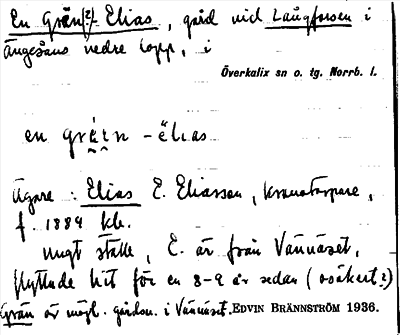 En Grän(?)-Elias, gård vid Långforsen i
Ängesåns nedre lopp, i
Överkalix sn o. tg. Norrb. l.
en grä̀tn - ëlias
Ägare: Elias E. Eliasson, kronotorpare,
f. 1889 kb.
nugt ställe, E. är från Vännäset,
flyttade hit för en 8-9 år sedan (osäkert?)
Grän är möjl. gårdsn. i Vännäset. EDVIN BRÄNNSTRÖM 1936.